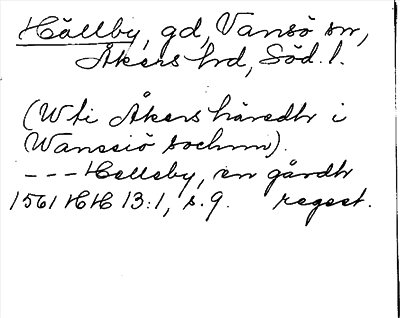 Hällby, gd, Vansö sn,
Åkers hd, Söd. l.
(Wti Åkers häredh i
Wanssiö sochnn).
– – – Hellsby, en gårdh
1561 HH 13:1, s. 9. regest.